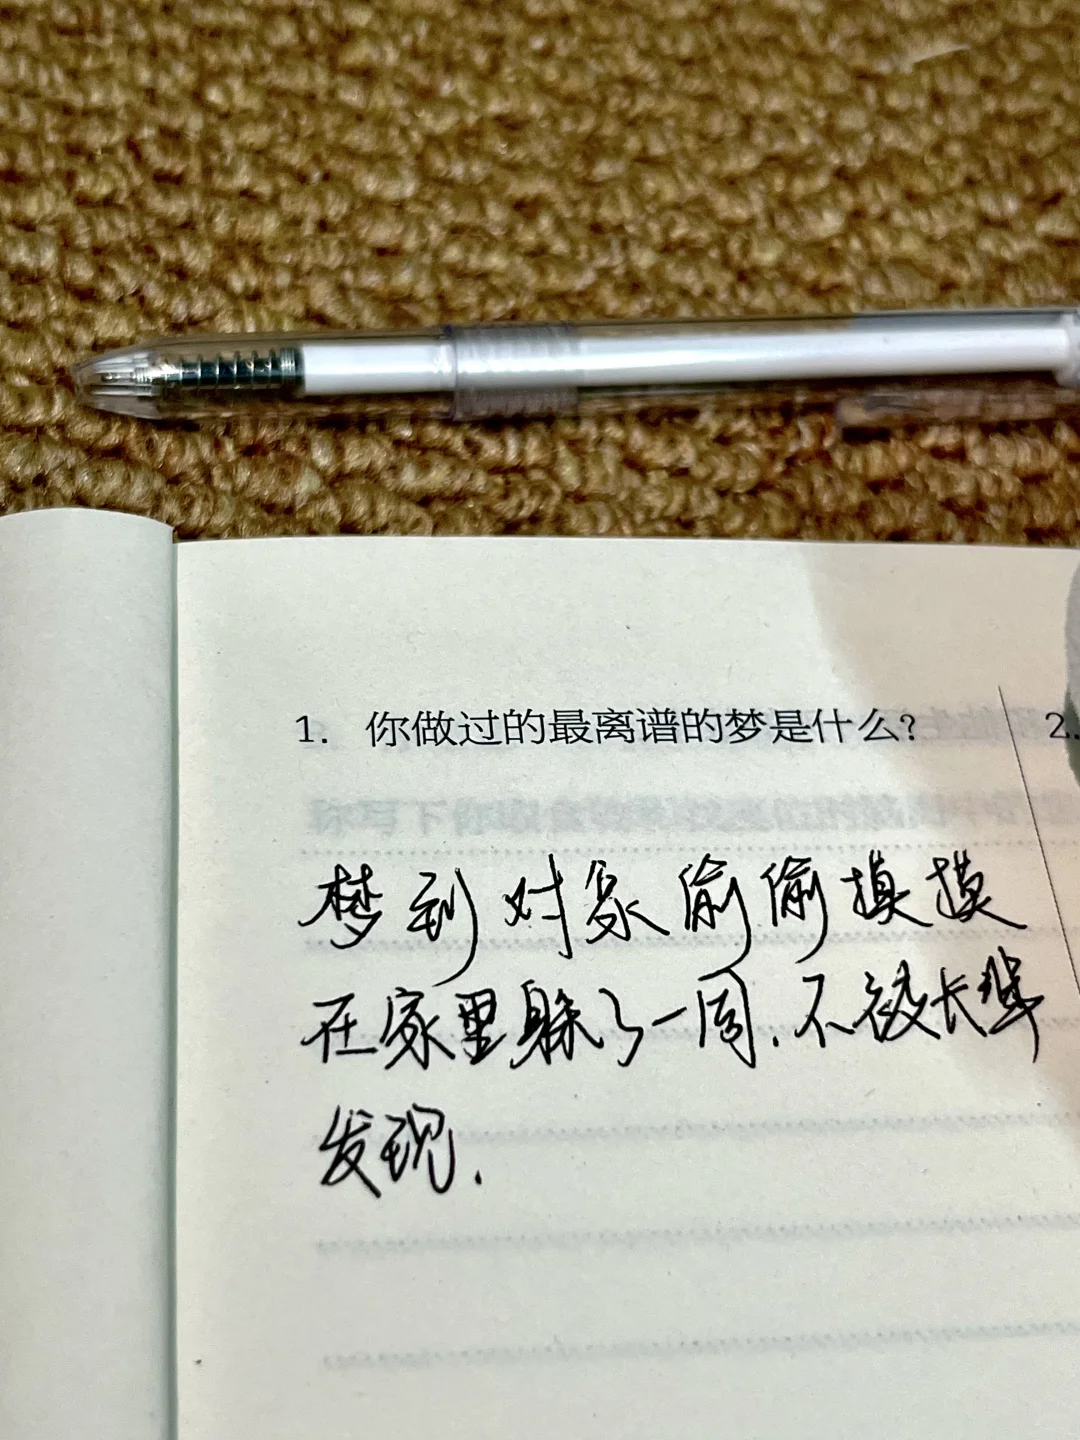 1. 你做过的最离谱的梦是什么?
2.
梦到对象偷偷摸摸
在家里躲了一周.不被长辈
发现.